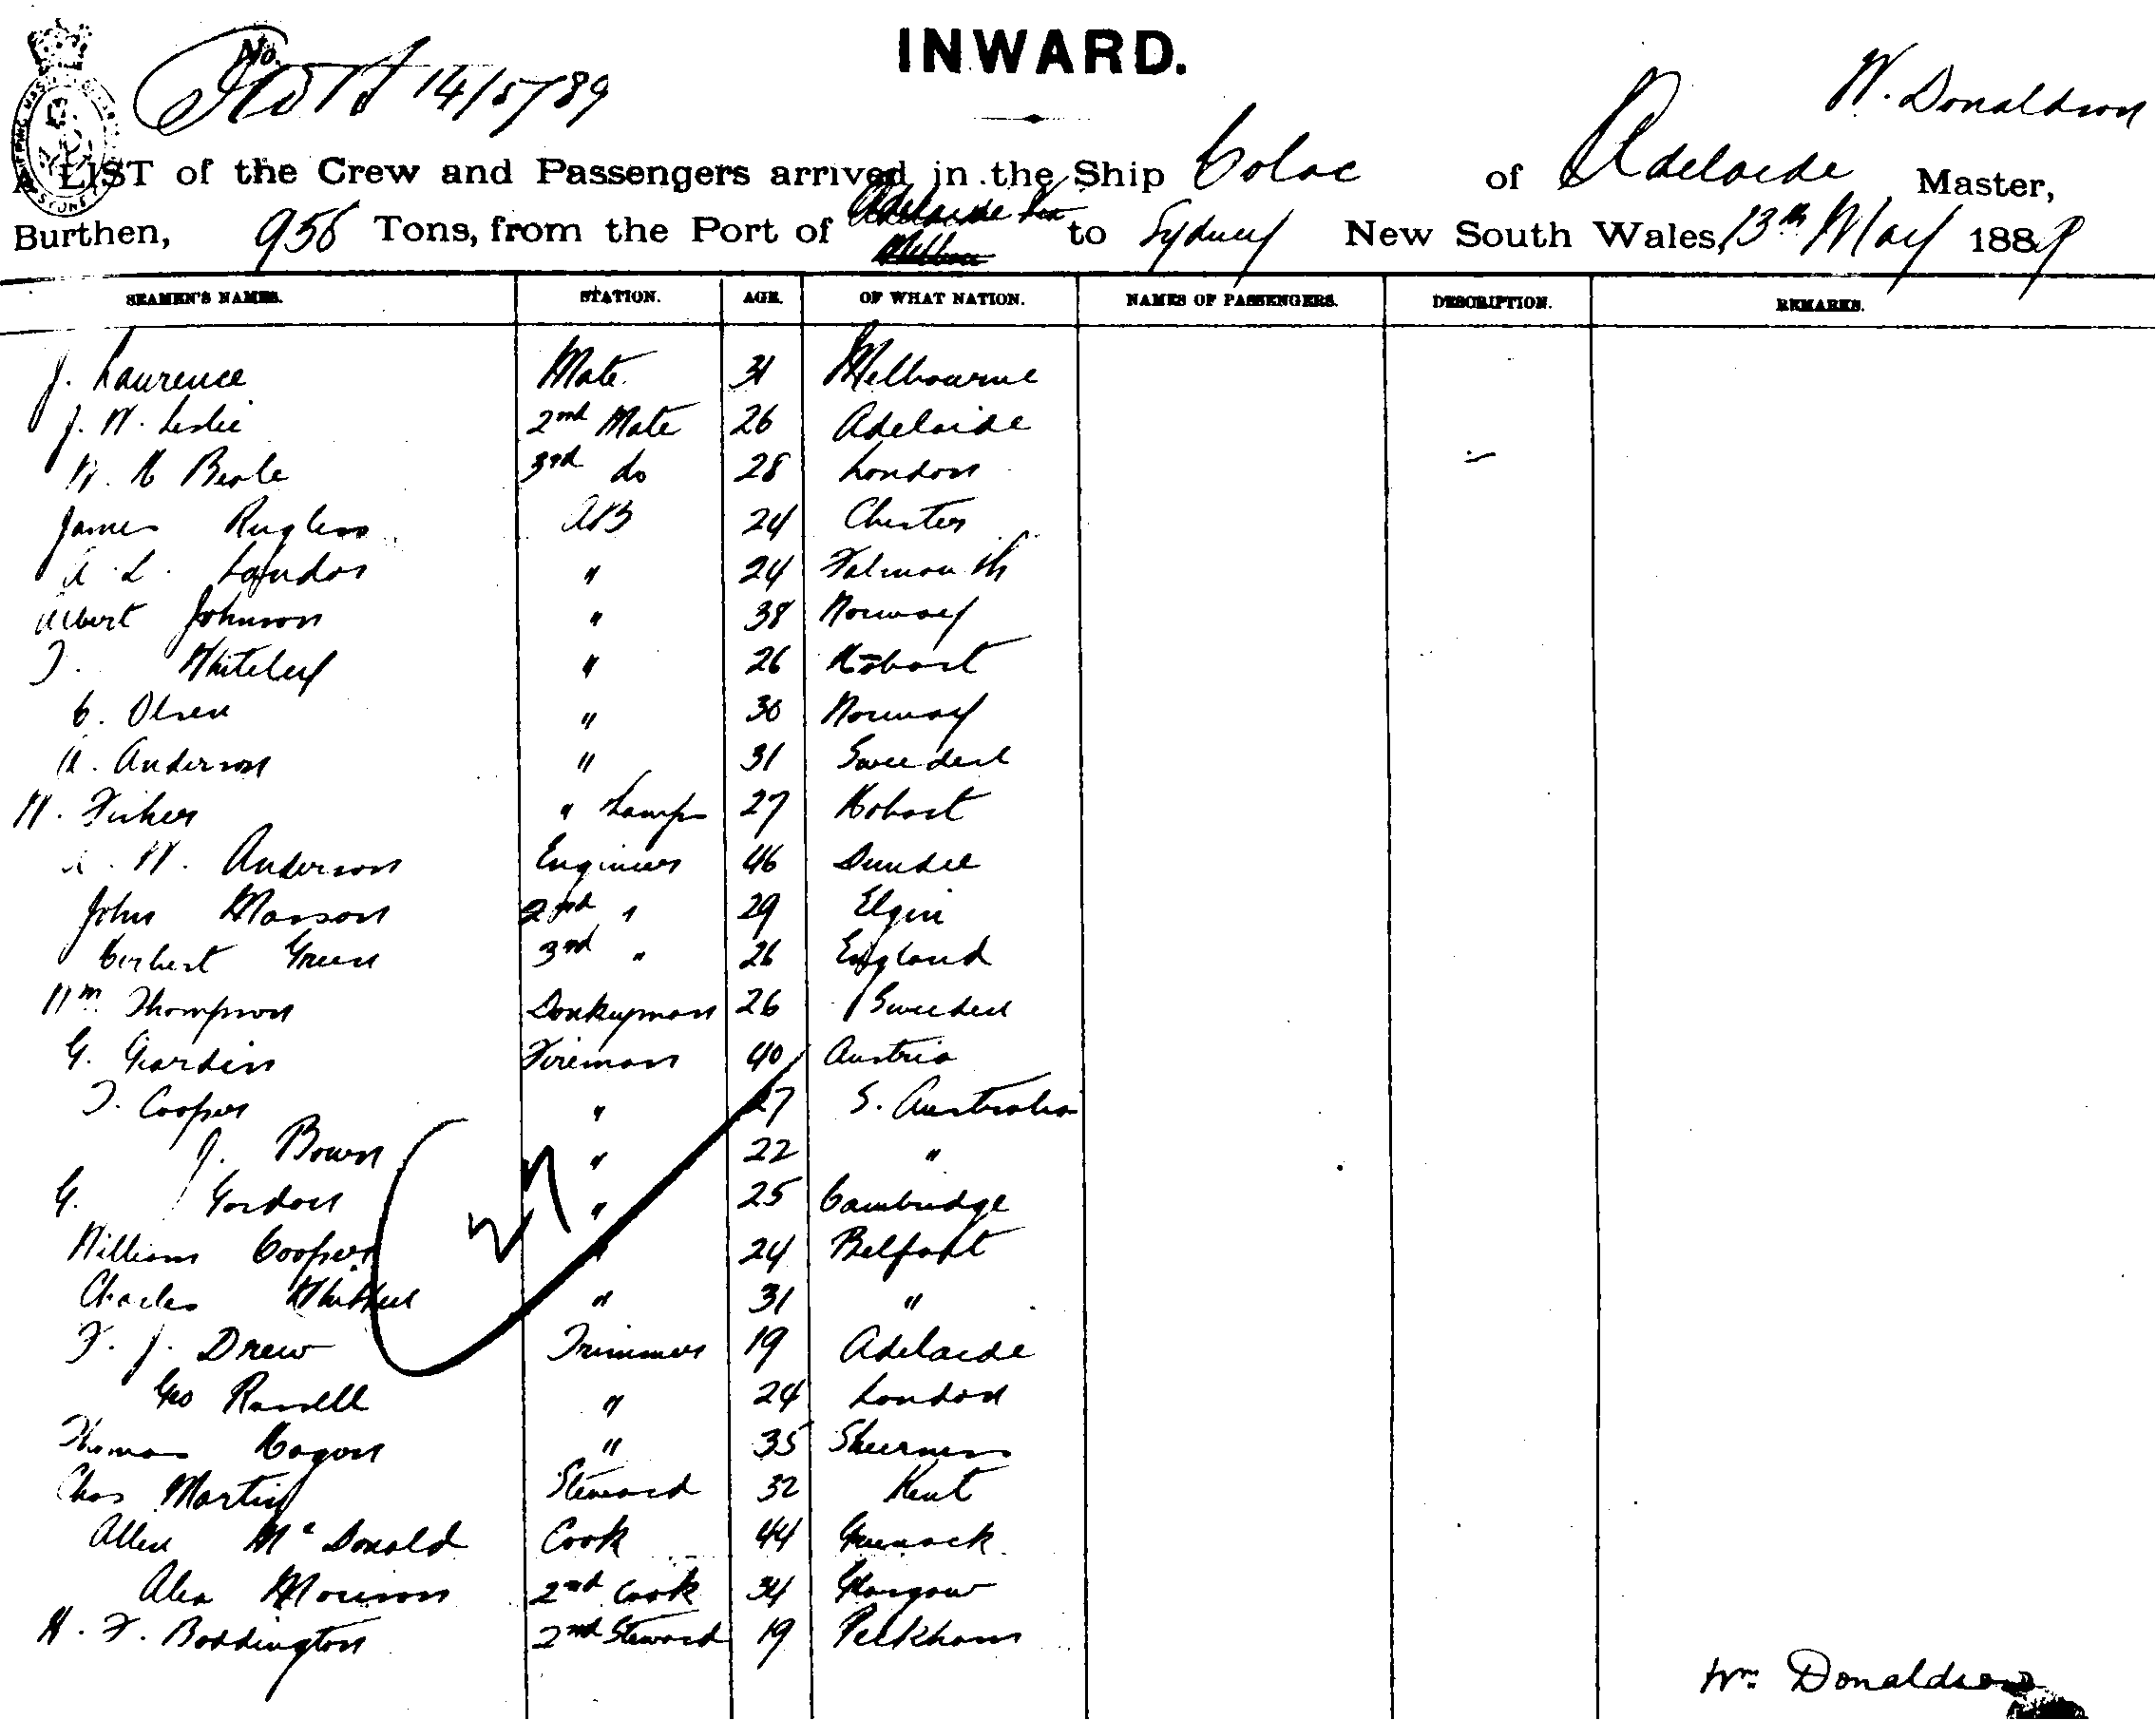 INWARD.
No.
14/5/89
W. Donaldson
A LIST of the Crew and Passengers arrived in the Ship Colac of Adelaide Master,
Burthen, 956 Tons, from the Port of Adelaide via to Sydney New South Wales, 13th May 1889
SEAMEN'S NAMES. STATION. AGE. OF WHAT NATION. NAMES OF PASSENGERS. DESCRIPTION. REMARKS.
J. Laurence Mate 31 Melbourne
J. W. Leslie 2nd Mate 26 Adelaide
W. H Beale 3rd do 28 London
James Rugless AB 24 Chester
A. L. Landor " 24 Falmouth
Albert Johnson " 38 Norway
T. Whiteley " 26 Hobart
C. Olsen " 30 Norway
A. Anderson " 31 Sweeden
W. Fisher " Lamps 27 Hobart
W. Anderson Engineer 46 Dundee
John Masson 2nd " 29 Elgin
Herbert Green 3rd " 26 England
Wm Thompson Donkeyman 26 Sweeden
G. Giardin Fireman 40 Austria
T. Cooper " 27 S. Australia
J. Bown " 22 "
G. Gordon " 25 Cambridge
William Cooper " 24 Belfast
Charles " 31 "
F. J. Drew Trimmer 19 Adelaide
Geo Russell " 24 London
Thomas Hogon " 35 Sheerness
Chas Martin Steward 32 Kent
Allen McDonald Cook 44 Greenock
Alex Morison 2nd Cook 34 Glasgow
H. F. Boddington 2nd Steward 19 Peckham
27
Wm Donaldson